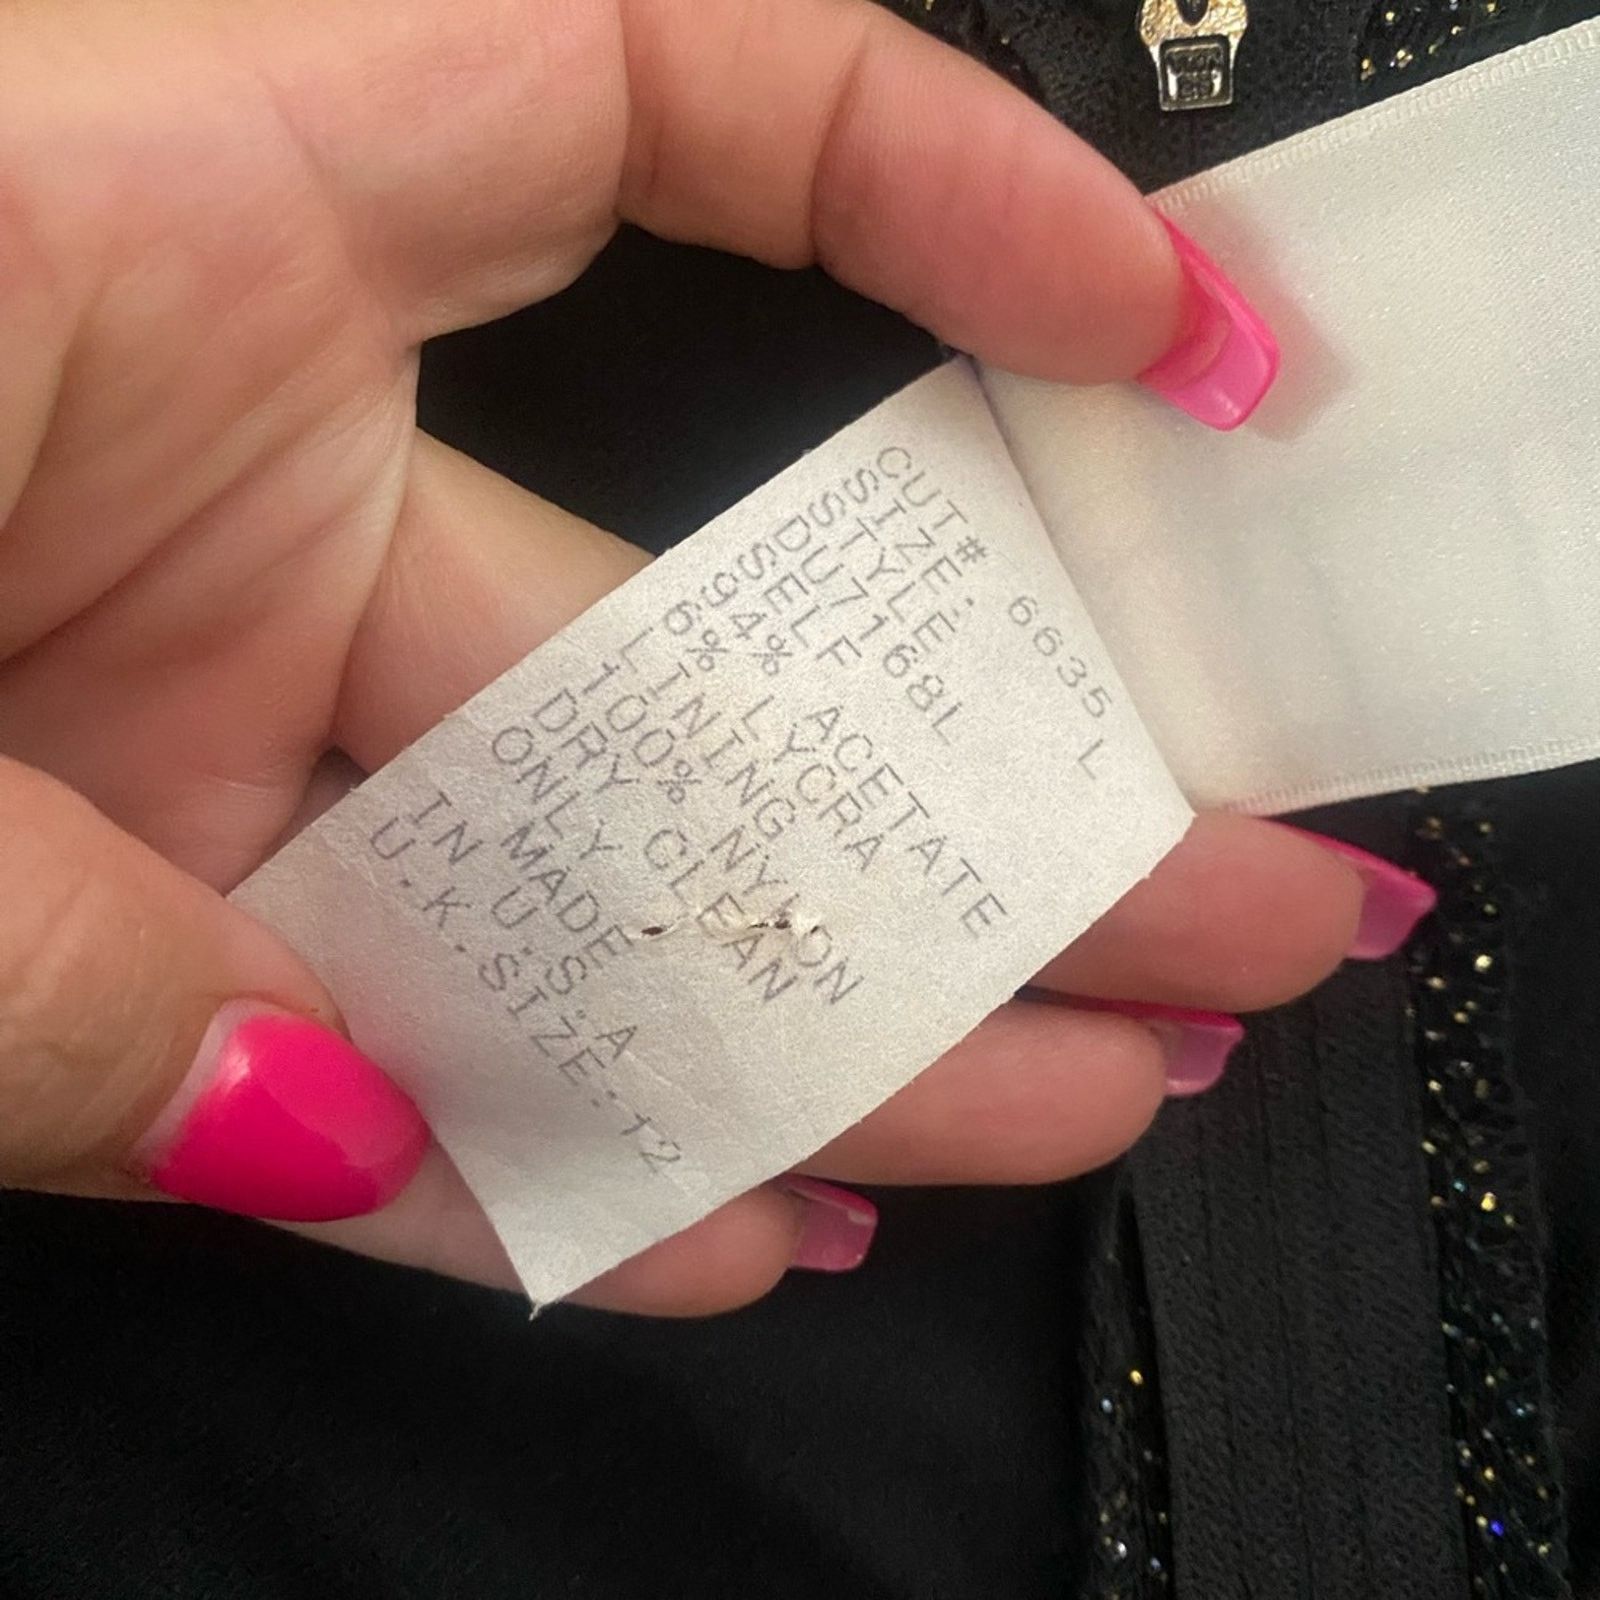 CUT# 6635
SIZE: L
STYLE
DU7168L
SELF
94% ACETATE
6% LYCRA
LINING
100% NYLON
DRY CLEAN
ONLY
MADE
IN U.S.A
U.K.SIZE:12